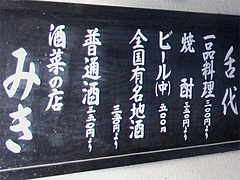 舌代
一品料理 三〇〇円より
焼酎 三五〇円より
ビール(中) 五〇〇円
全国有名地酒
三五〇円より
普通酒 三五〇円より
酒菜の店
みき